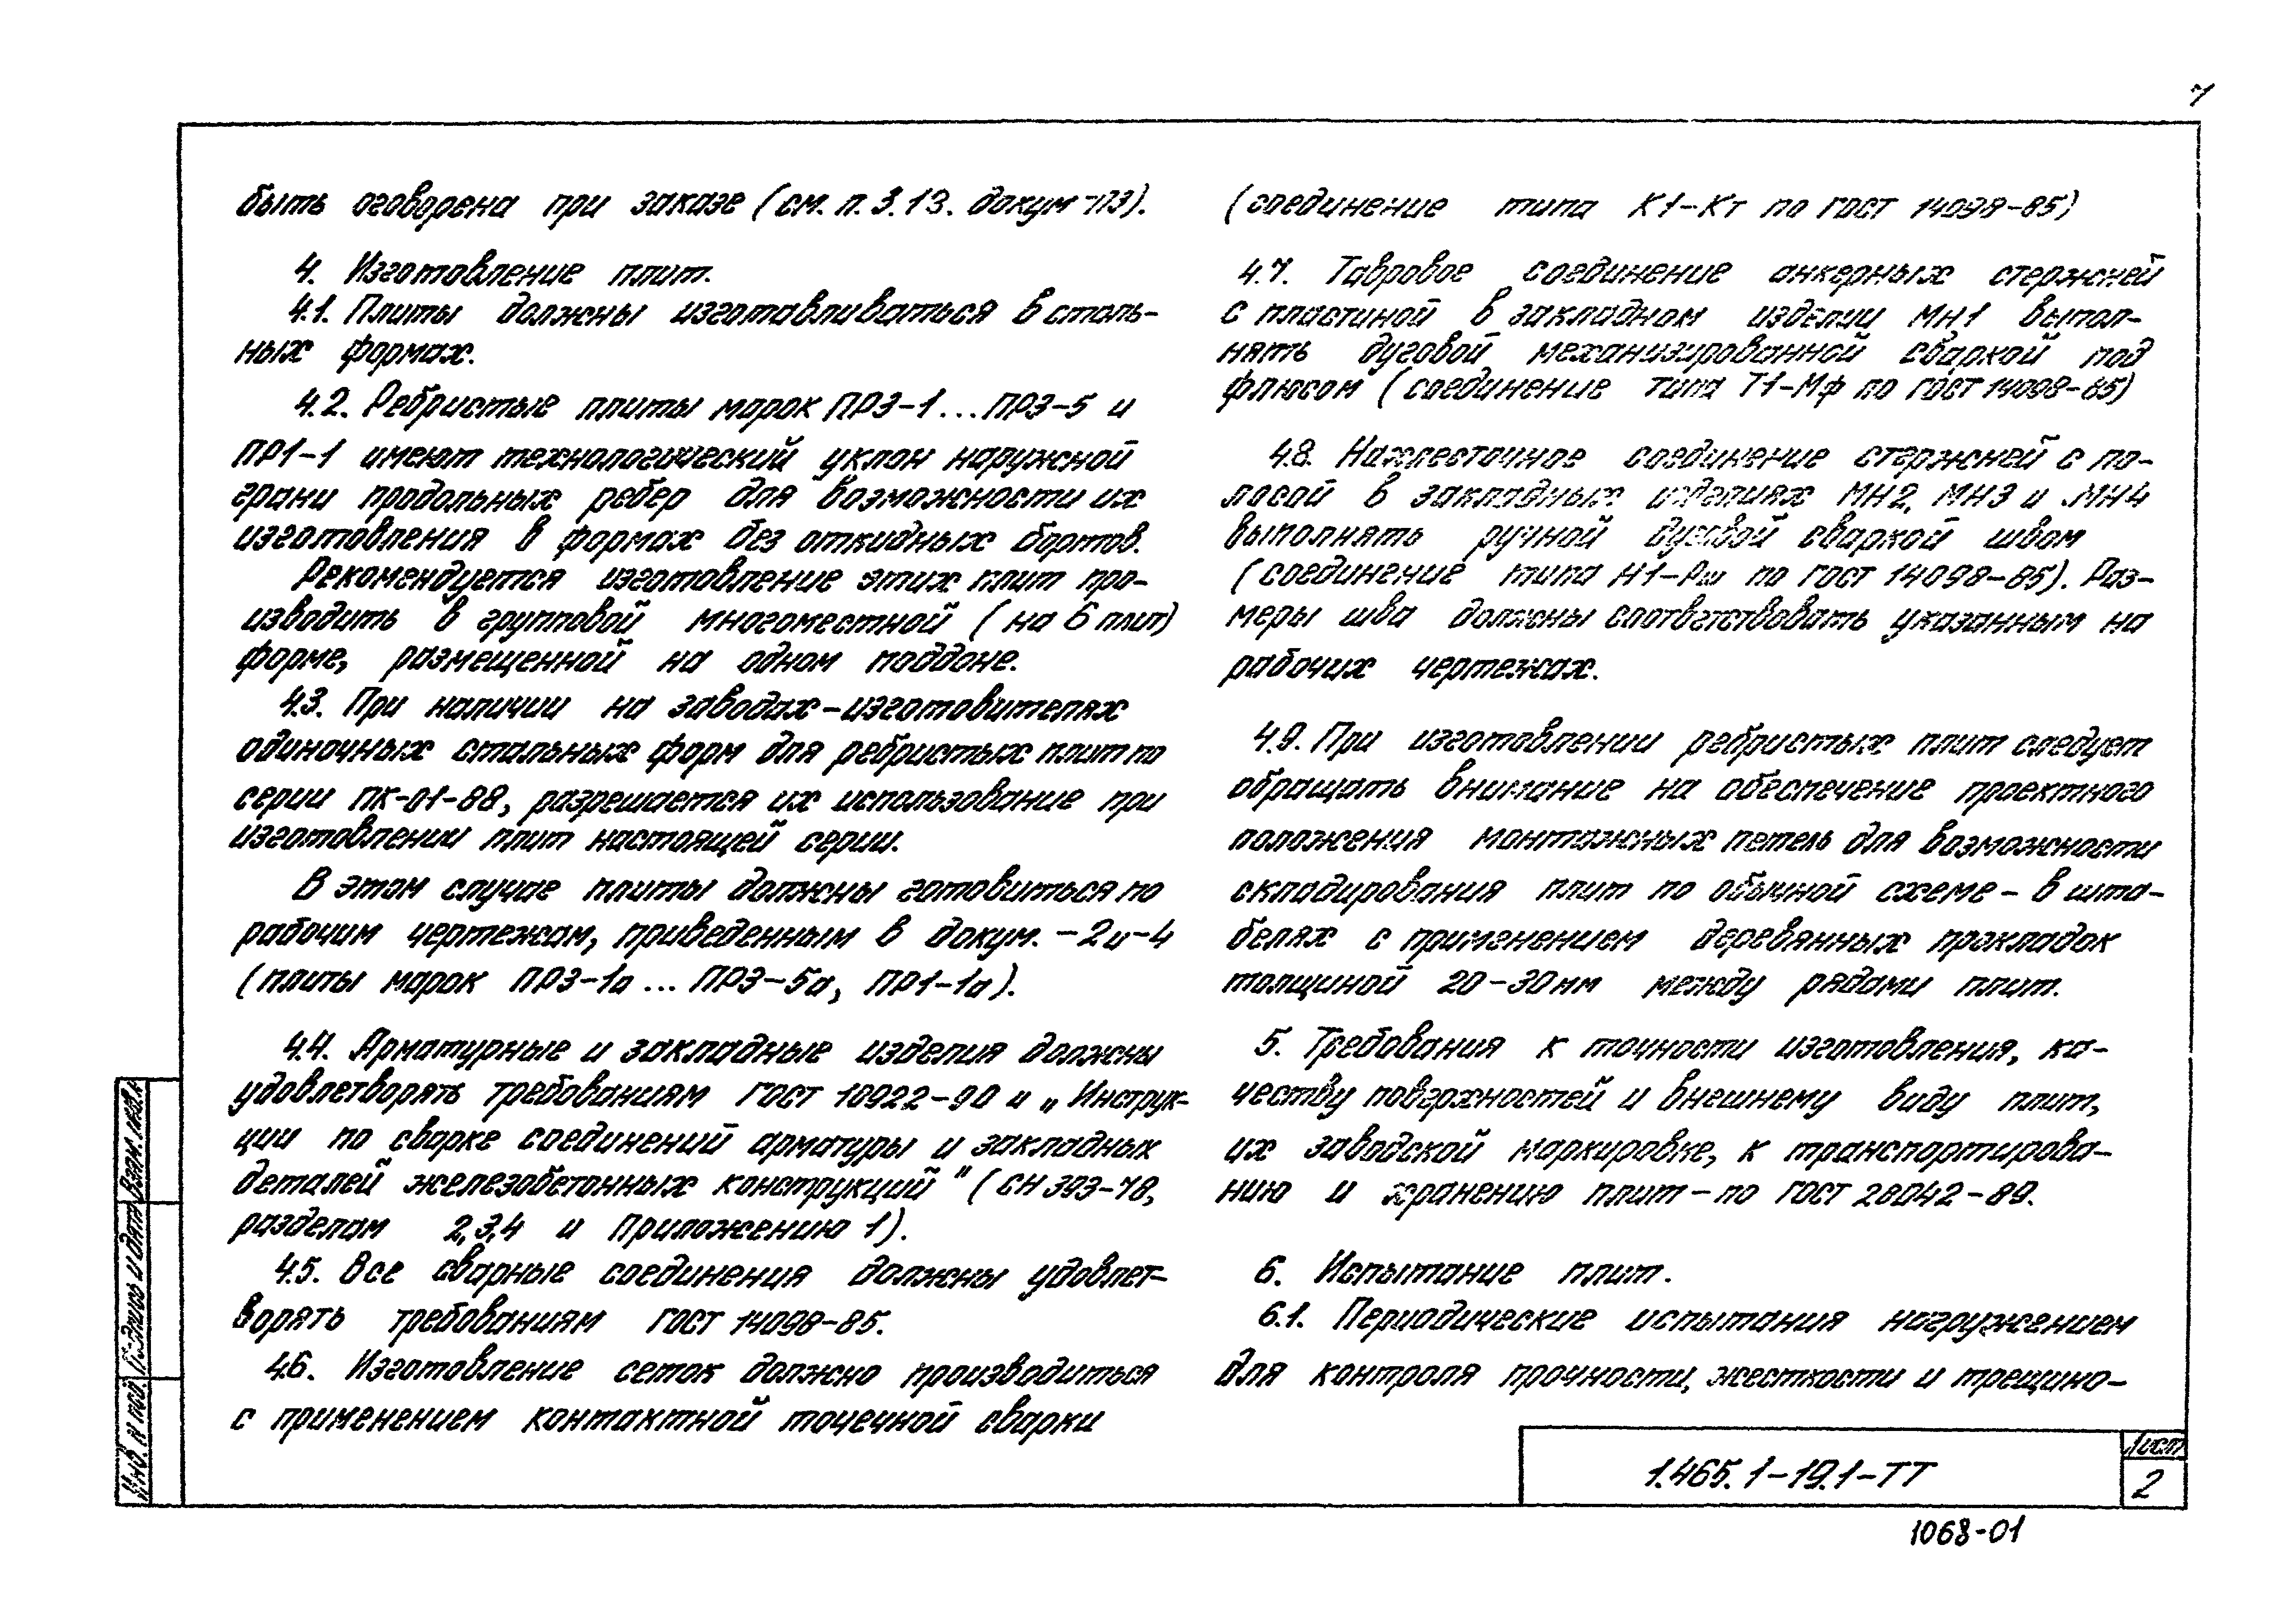 7
быть оговорена при заказе (см. п. 3.13. докум -ПЗ).
4. Изготовление плит.
4.1. Плиты должны изготавливаться в сталь-
ных формах.
4.2. Ребристые плиты марок ПР3-1...ПР3-5 и
ПР1-1 имеют технологический уклон наружной
грани продольных ребер для возможности их
изготовления в формах без откидных бортов.
Рекомендуется изготовление этих плит про-
изводить в групповой многоместной (на 6 плит)
форме, размещенной на одном поддоне.
4.3. При наличии на заводах-изготовителях
одиночных стальных форм для ребристых плит по
серии ПК-01-88, разрешается их использование при
изготовлении плит настоящей серии.
В этом случае плиты должны готовиться по
рабочим чертежам, приведенным в докум. -2и-4
(плиты марок ПР3-1а ... ПР3-5а, ПР1-1а).
4.4. Арматурные и закладные изделия должны
удовлетворять требованиям ГОСТ 10922-90 и „Инструк-
ции по сварке соединений арматуры и закладных
деталей железобетонных конструкций" (СН 393-78,
разделам 2,3,4 и Приложению 1).
4.5. Все сварные соединения должны удовлет-
ворять требованиям ГОСТ 14098-85.
4.6. Изготовление сеток должно производиться
с применением контактной точечной сварки
(соединение типа К1-Кт по ГОСТ 14098-85)
4.7. Тавровое соединение анкерных стержней
с пластиной в закладном изделии МН1 выпол-
нять дуговой механизированной сваркой под
флюсом (соединение типа Т1-Мф по ГОСТ 14098-85)
4.8. Нахлесточное соединение стержней с по-
лосой в закладных изделиях МН2, МН3 и МН4
выполнять ручной дуговой сваркой швом
(соединение типа Н1-Рш по ГОСТ 14098-85). Раз-
меры шва должны соответствовать указанным на
рабочих чертежах.
4.9. При изготовлении ребристых плит следует
обращать внимание на обеспечение проектного
положения монтажных петель для возможности
складирования плит по обычной схеме - в шта-
белях с применением деревянных прокладок
толщиной 20-30мм между рядами плит.
5. Требования к точности изготовления, ка-
честву поверхностей и внешнему виду плит,
их заводской маркировке, к транспортирова-
нию и хранению плит - по ГОСТ 28042-89.
6. Испытание плит.
6.1. Периодические испытания нагружением
для контроля прочности, жесткости и трещино-
Взам. инв. №
Подпись и дата
Инв. № под.
1.465.1-19.1-ТТ
Лист
2
1068-01